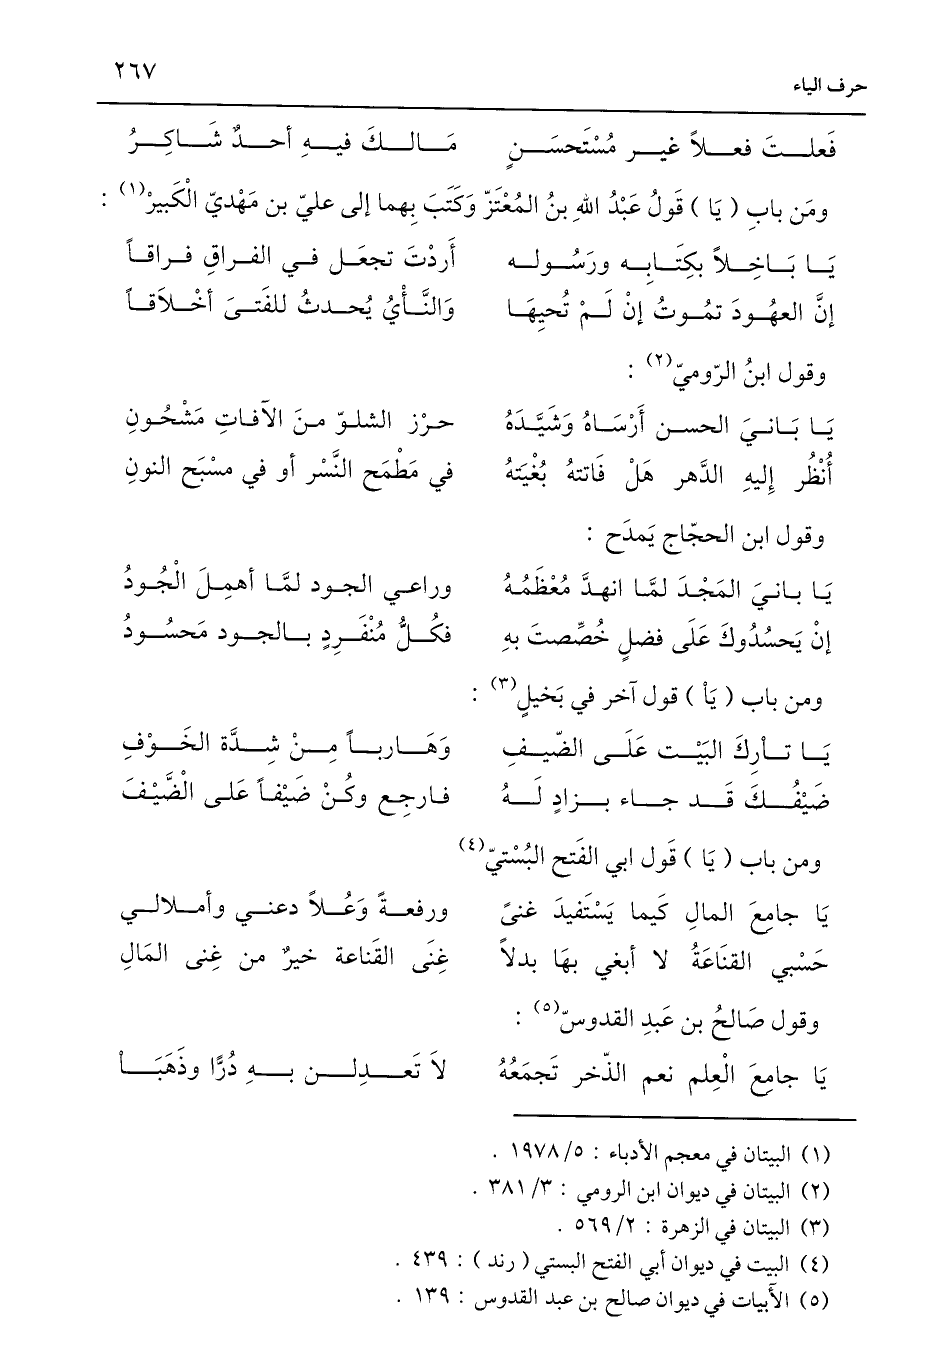 حرف الياء ٢٦٧
فَعلت فعلاً غير مُسْتَحسَنٍ مَالكَ فيهِ أحدٌ شَاكِرُ
ومَن بابِ ( يَا ) قَولُ عَبْدُ اللهِ بنُ المُعْتَزّ وَكَتَبَ بِهما إلى عليّ بن مَهْديّ الْكَبيرْ(١) :
يَا بَاخِلاً بكِتَابِه ورَسُوله أَردْتَ تجعَل في الفراقِ فراقاً
إنَّ العهُودَ تمُوتُ إنْ لَمْ تُحيِهَا وَالنَّأْيُ يُحدثُ للفَتىَ أخْلاَقاً
وقول ابنُ الرّوميّ(٢) :
يَا بَانيَ الحسن أَرْسَاهُ وَشَيَّدَهُ حرْز الشلوّ منَ الآفاتِ مَشْحُونِ
أُنْظُر إليهِ الدَّهر هَلْ فَاتتهُ بُغْيَتهُ في مَطْمَح النَّسْر أو في مسْبَح النونِ
وقول ابن الحجّاج يَمدَح :
يَا بانيَ المَجْدَ لمَّا انهدَّ مُعْظَمُهُ وراعي الجود لمَّا أهملَ الْجُودُ
إنْ يَحسُدُوكَ عَلَى فضلٍ خُصِّصتَ بهِ فكلُّ مُنْفَردٍ بالجود مَحسُودُ
ومن باب ( يَاْ ) قول آخر في بَخيلٍ(٣) :
يَا تاْركَ البَيْت عَلَى الضّيفِ وَهَارباً مِنْ شِدَّة الخَوْفِ
ضَيْفُكَ قَد جاء بزادٍ لَهُ فارجع وكُنْ ضَيْفاً عَلى الْضَّيْفَ
ومن باب ( يَا ) قَول ابي الفَتح البُسْتيّ(٤)
يَا جامِعَ المالِ كَيما يَسْتَفيدَ غنىً ورفعةً وَعُلاً دعني وأمالالي
حَسْبي القنَاعَةُ لا أبغي بهَا بدلاً غِنَى القَناعة خيرٌ من غِنى المَالِ
وقول صَالحُ بن عَبدِ القدوسّ(٥) :
يَا جامِعَ الْعِلم نعم الذّخر تَجمَعُهُ لاَ تَعدِلن بهِ دُرًّا وذَهَبَاْ
(١) البيتان في معجم الأدباء : ١٩٧٨/٥ .
(٢) البيتان في ديوان ابن الرومي : ٣٨١/٣ .
(٣) البيتان في الزهرة : ٥٦٩/٢ .
(٤) البيت في ديوان أبي الفتح البستي ( رند ) : ٤٣٩ .
(٥) الأبيات في ديوان صالح بن عبد القدوس : ١٣٩ .